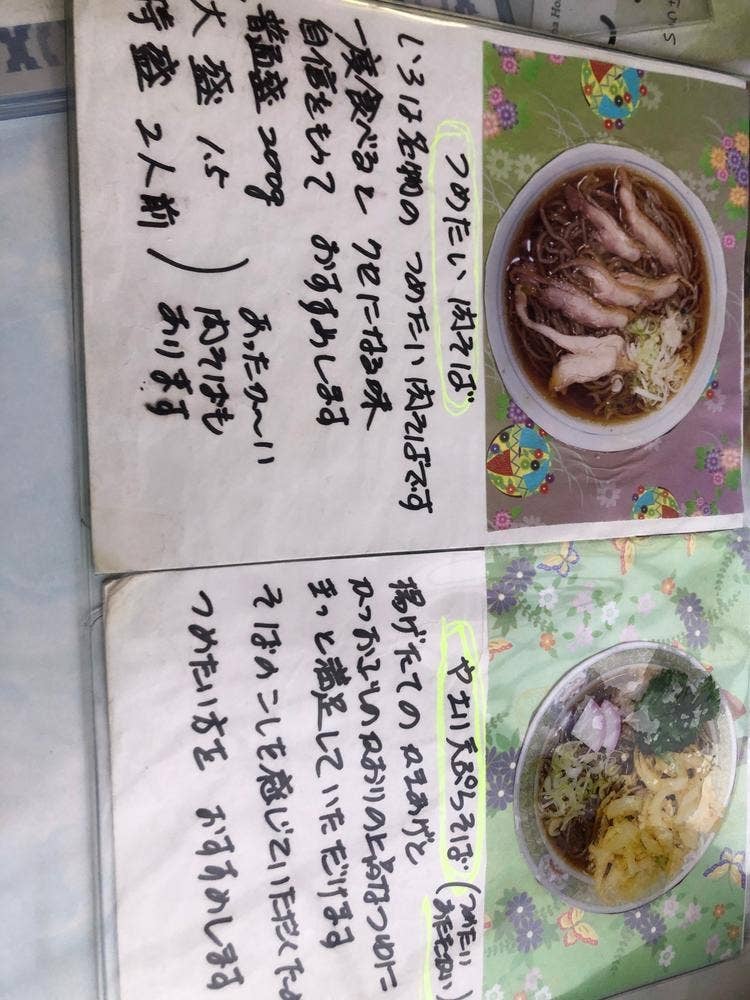 つめたい肉そば
いろは名物の つめたい肉そばです
一度食べると クセになる味
自信をもって おすすめします
普通盛 200g
大盛 1.5
特盛 2人前
あったか〜い
肉そばも
あります
やまり天ぷらそば (つめたい
あたたかい)
揚げたての かきあげと
かつおぶしのかおりの上品なつゆに
きっと満足していただけます
そばのこしを感じていただく
つめたい方を おすすめします